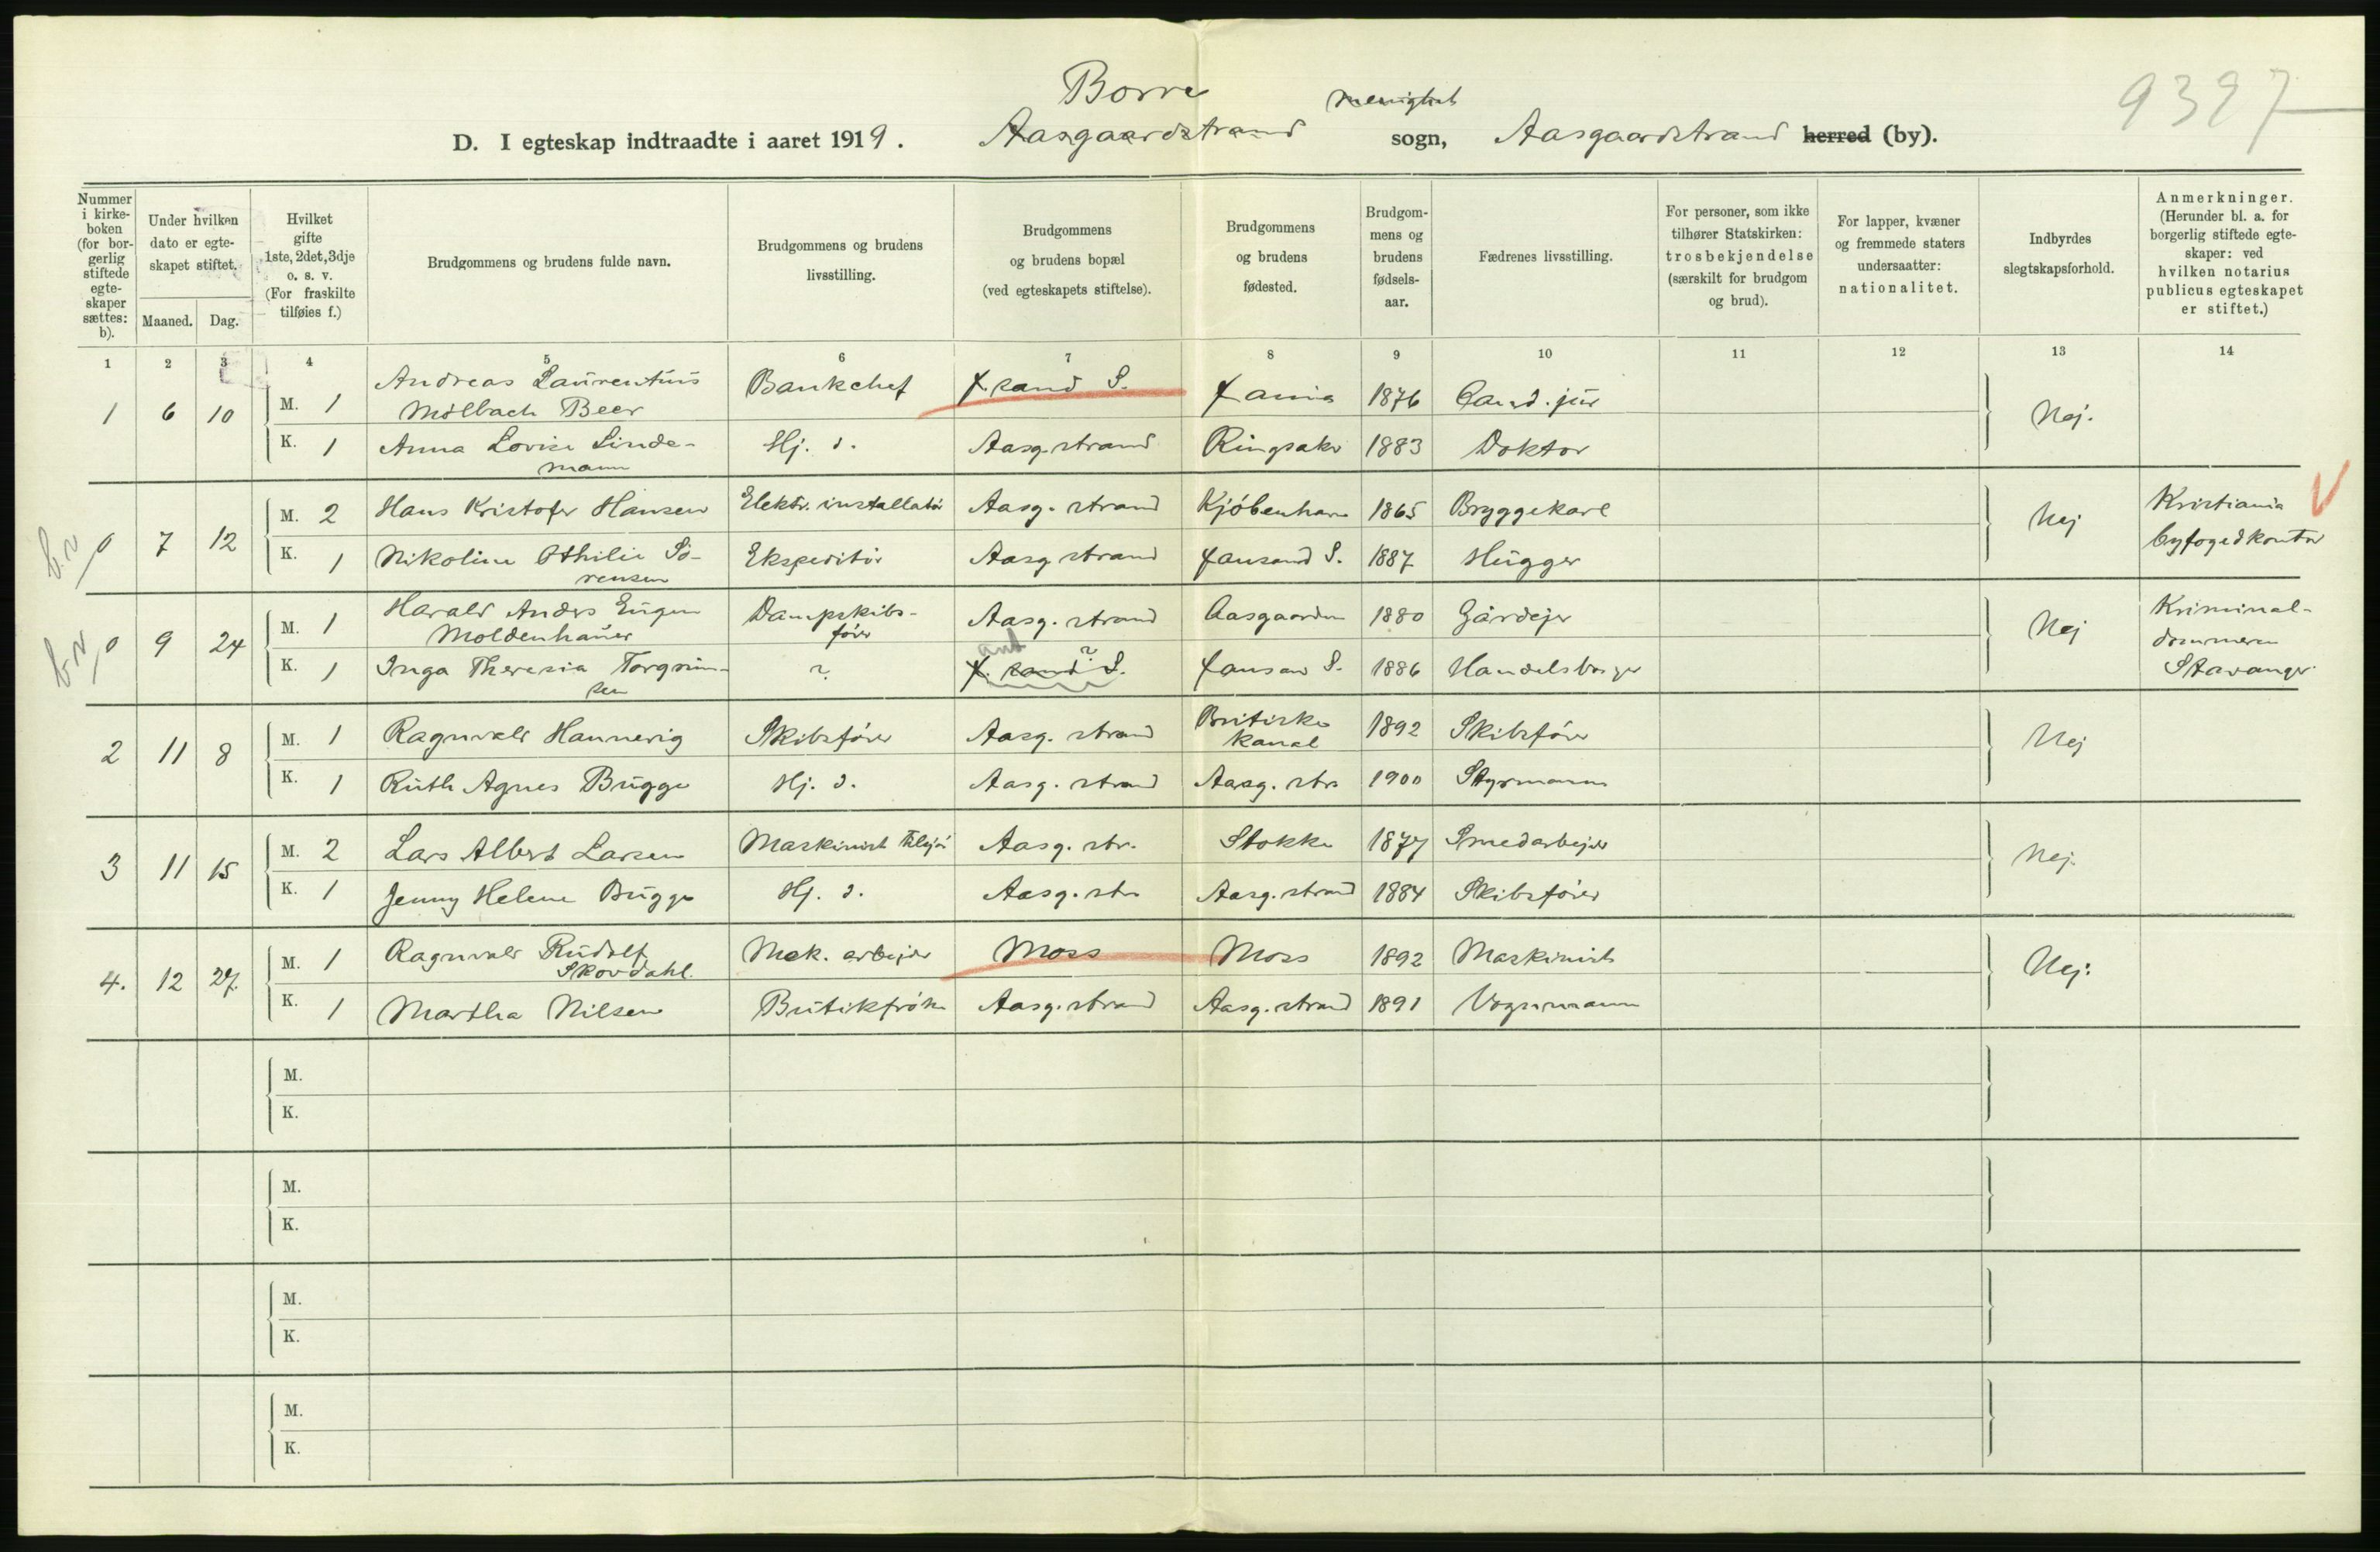 Borre
menighet
9397
D. I egteskap indtraadte i aaret 1919. Aasgaardstrand sogn, Aasgaardstrand herred (by).
Nummer i kirkeboken (for borgerlig stiftede egteskaper sættes: b).
Under hvilken dato er egteskapet stiftet.
Maaned. Dag.
Hvilket gifte 1ste, 2det, 3dje o. s. v. (For fraskilte tilføies f.)
Brudgommens og brudens fulde navn.
Brudgommens og brudens livsstilling.
Brudgommens og brudens bopæl (ved egteskapets stiftelse).
Brudgommens og brudens fødested.
Brudgommens og brudens fødselsaar.
Fædrenes livsstilling.
For personer, som ikke tilhører Statskirken: trosbekjendelse (særskilt for brudgom og brud).
For lapper, kvæner og fremmede staters undersaatter: nationalitet.
Indbyrdes slegtskapsforhold.
Anmerkninger. (Herunder bl. a. for borgerlig stiftede egteskaper: ved hvilken notarius publicus egteskapet er stiftet.)
1 2 3 4 5 6 7 8 9 10 11 12 13 14
1 6 10 M. 1 Andreas Laurentius Bankchef X.sand S. Xania 1876 Cand. jur Nej.
Mölbach Beer
K. 1 Anna Lovise Linde- Hj. d. Aasg. strand Ringsaker 1883 Doktor
mann
b.v 0 7 12 M. 2 Hans Kristofer Hansen Elektr. installatör Aasg. strand Kjöbenhavn 1865 Bryggekarl Nej Kristiania
byfogedkontor
K. 1 Nikoline Othilie Sö- Ekspeditör Aasg strand Xansand S. 1887 Hugger
rensen
b.v 0 9 24 M. 1 Harald Anders Eugen Dampskibs- Aasg. strand Aasgaarden 1880 Gårdejer Nej Kriminal-
Moldenhauer förer dommeren
Stavanger
K. 1 Inga Theresia Torgrim- ? X.sand S. ? Xansan S. 1886 Handelsborger
sen
2 11 8 M. 1 Ragnvald Hannevig Skibsförer Aasg. strand Britiske 1892 Skibsförer Nej
kanal
K. 1 Ruth Agnes Bugge Hj. d. Aasg. strand Aasg. str. 1900 Styrmann
3 11 15 M. 2 Lars Albert Larsen Maskinist Aasg. str. Stokke 1877 Smedarbejder Nej.
K. 1 Jenny Helene Bugge Hj. d. Aasg. str. Aasg. strand 1884 Skibsförer
4. 12 27. M. 1 Ragnvald Rudolf Mek. arbejder Moss Moss 1892 Maskinist Nej.
Skovdahl.
K. 1 Martha Nilsen Butikfrök Aasg. strand Aasg. strand 1891 Vognmann
M.
K.
M.
K.
M.
K.
M.
K.